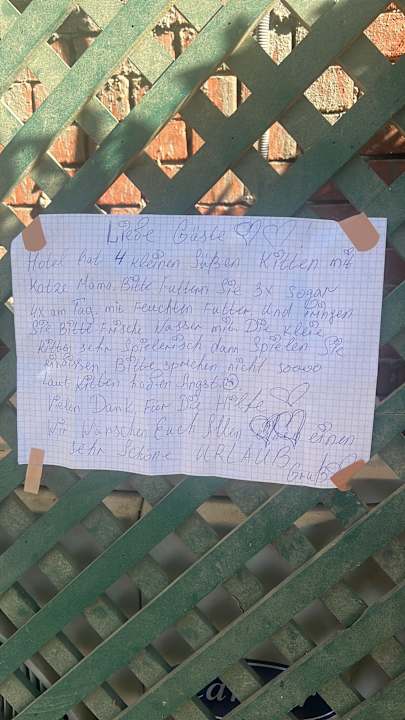 Liebe Gäste ♡♡!
Hotel hat 4 kleinen Süßen Kitten mit
Katze Mama. Bitte Füttern Sie 3x sogar
4x am Tag mit Feuchten Futter und bringen
Sie Bitte Frische Wasser mit. Die kleine
Kitten sehr Spielerisch dann Spielen Sie
müssen. Bitte sprechen nicht soooo
laut Kitten haben Angst ☹.
Vielen Dank Für Die Hilfe ♡
Wir Wünschen Euch Allen einen
sehr Schöne URLAUB!
Gruß